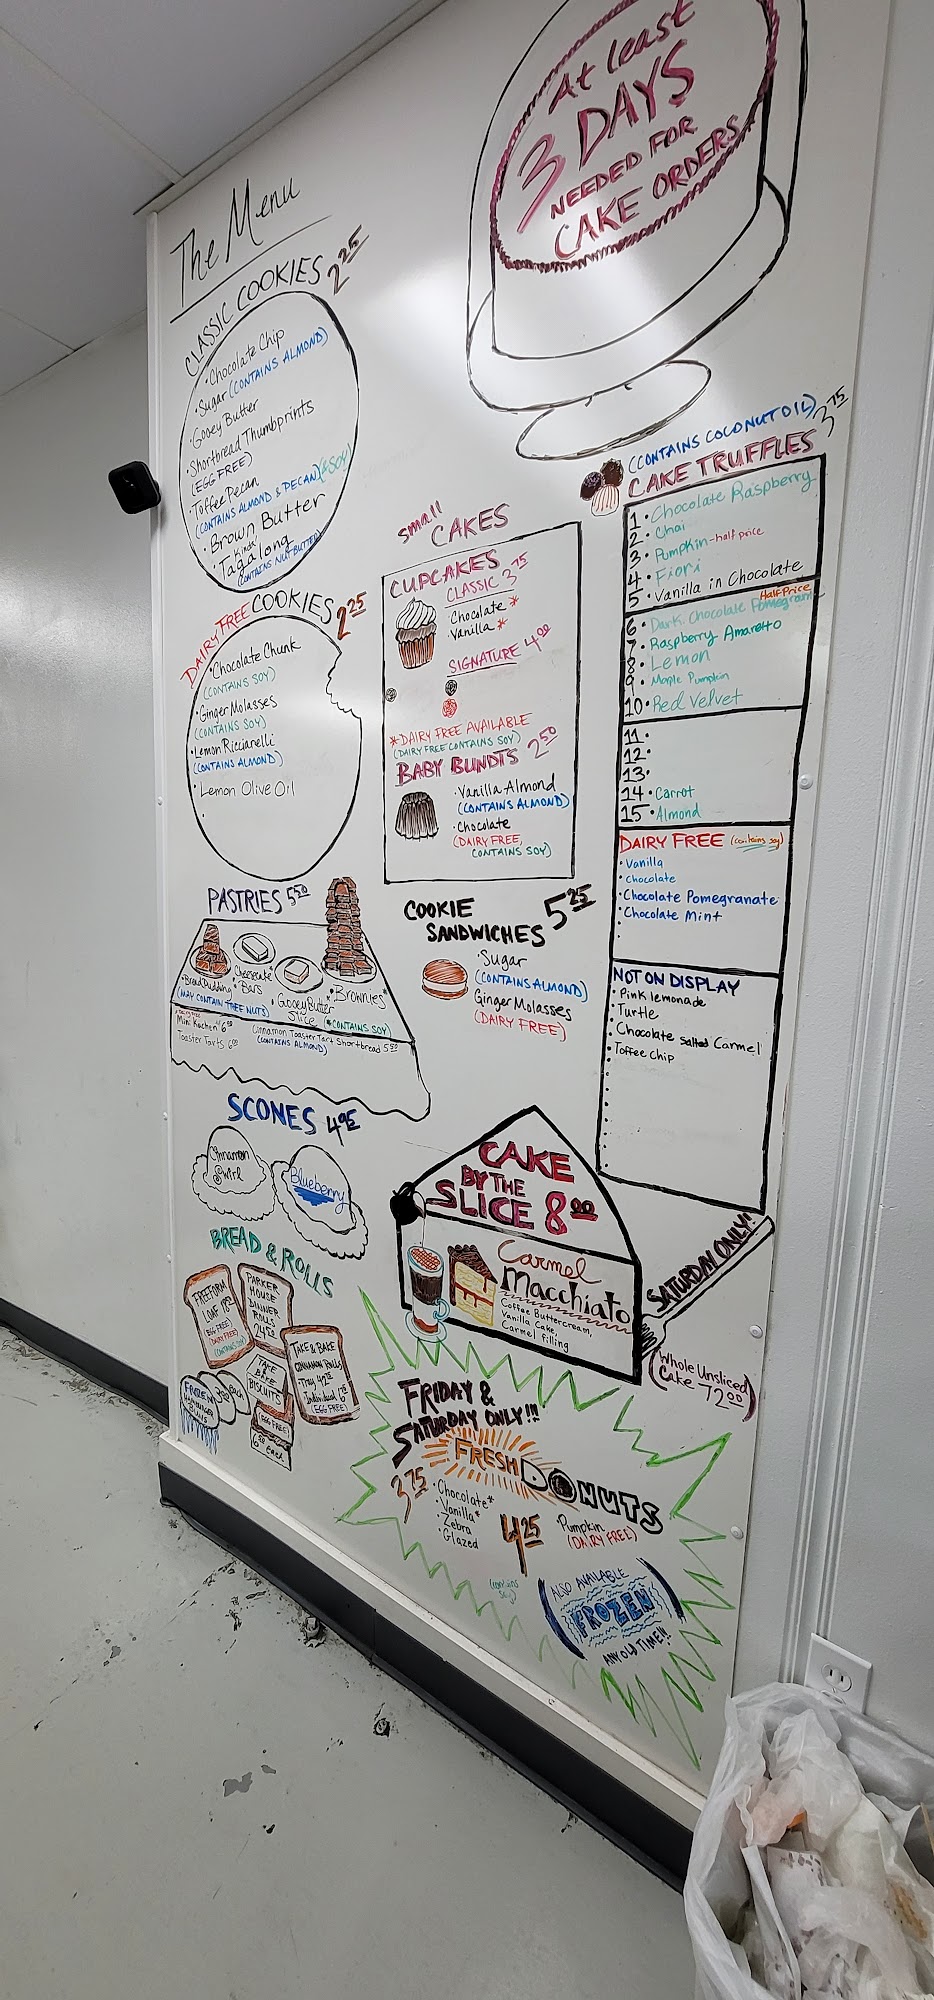 The Menu
At least
3 DAYS
NEEDED FOR
CAKE ORDERS
CLASSIC COOKIES 2.25
• Chocolate Chip
• Sugar (CONTAINS ALMOND)
• Gooey Butter
• Shortbread Thumbprints
(EGG FREE)
• Toffee Pecan
(CONTAINS ALMOND & PECAN) (& SOY)
• Brown Butter
Kinda
• Tagalong
CONTAINS NUT BUTTER
DAIRY FREE COOKIES 2.25
• Chocolate Chunk
(CONTAINS SOY)
• Ginger Molasses
(CONTAINS SOY)
• Lemon Ricciarelli
(CONTAINS ALMOND)
• Lemon Olive Oil
PASTRIES 5.50
• Bread Pudding
(MAY CONTAIN TREE NUTS)
• Cheesecake
Bars
• Gooey Butter
Slice
• Brownies*
(*CONTAINS SOY)
Mini Kuchen
Toaster Tarts 6.00
Cinnamon Toaster Tart Shortbread 5.50
(CONTAINS ALMOND)
SCONES 4.95
Cinnamon
Swirl
Blueberry
BREAD & ROLLS
FREEFORM
LOAF
(EGG FREE)
(DAIRY FREE)
(CONTAINS SOY)
PARKER
HOUSE
DINNER
ROLLS
24.50
TAKE & BAKE
CINNAMON ROLLS
Tray 42.00
Individual
(EGG FREE)
TAKE
BAKE
BISCUITS
(EGG FREE)
each
FROZEN
BUNS
small
CAKES
CUPCAKES
CLASSIC 3.75
Chocolate *
Vanilla *
SIGNATURE 4.00
*DAIRY FREE AVAILABLE
(DAIRY FREE CONTAINS SOY)
BABY BUNDTS 2.50
• Vanilla Almond
(CONTAINS ALMOND)
• Chocolate
(DAIRY FREE,
CONTAINS SOY)
COOKIE
SANDWICHES 5.25
• Sugar
(CONTAINS ALMOND)
Ginger Molasses
(DAIRY FREE)
(CONTAINS COCONUT OIL)
CAKE TRUFFLES 3.75
1 • Chocolate Raspberry
2 • Chai
3 • Pumpkin - half price
4 • Fiori
5 • Vanilla in Chocolate
Half Price
6 • Dark Chocolate Pomegranate
7 • Raspberry Amaretto
8 • Lemon
9 • Maple Pumpkin
10 • Red Velvet
11 •
12 •
13 •
14 • Carrot
15 • Almond
DAIRY FREE (contains soy)
• Vanilla
• Chocolate
• Chocolate Pomegranate
• Chocolate Mint
NOT ON DISPLAY
• Pink lemonade
• Turtle
• Chocolate salted Carmel
• Toffee Chip
CAKE
BY THE
SLICE 8.00
Carmel
Macchiato
Coffee Buttercream,
Vanilla Cake,
Carmel filling
SATURDAY ONLY!
(Whole Unsliced
Cake 72.00)
FRIDAY &
SATURDAY ONLY!!!
FRESH DONUTS
3.75
• Chocolate*
• Vanilla*
• Zebra
• Glazed
4.25
• Pumpkin
(DAIRY FREE)
(contains
soy)
ALSO AVAILABLE
FROZEN
ANY OLD TIME!!